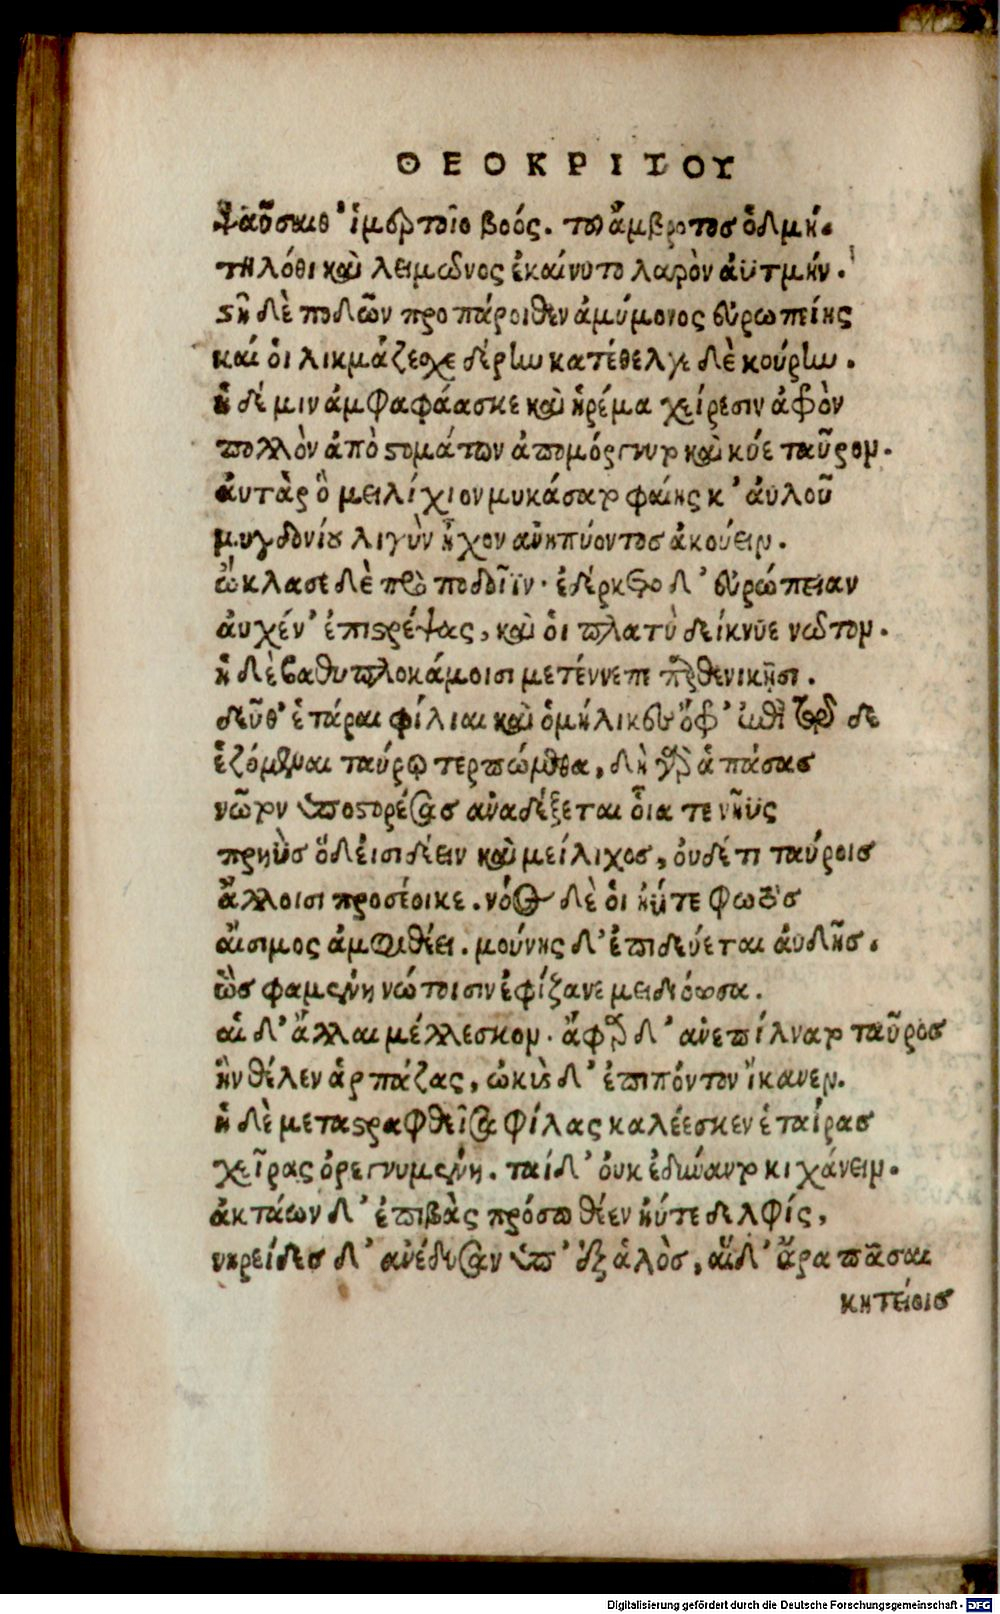 ΘΕΟΚΡΙΤΟΥ
ψαῦσαιθ' ἱμερτοῖο βοός. τοῦ ἄμβροτος ὀδμή.
τηλόθι καὶ λειμῶνος ἐκαίνυτο λαρὸν ἀϋτμήν.
στῆ δὲ ποδῶν προπάροιθεν ἀμύμονος εὐρωπείης
καί οἱ λιχμάζεσκε δέρην κατέθελγε δὲ κούρην.
ἡ δέ μιν ἀμφαφάασκε καὶ ἠρέμα χείρεσιν ἀφρὸν
πολλὸν ἀπὸ στομάτων ἀπομόργνυτο καὶ κύσε ταῦρον.
αὐτὰρ ὃ μειλίχιον μυκάσατο φαίης κ' αὐλοῦ
μυγδονίου λιγὺν ἦχον ἀνηπύοντος ἀκούειν.
ὤκλασε δὲ πρὸ ποδοῖϊν. ἐδέρκετο δ' εὐρώπειαν
αὐχέν' ἐπιστρέψας, καὶ οἱ πλατὺ δείκνυε νῶτον.
ἡ δὲ βαθυπλοκάμοισι μετέννεπε παρθενικῇσι.
δεῦθ' ἑτάραι φίλιαι καὶ ὁμήλικες ὄφρ' ἐπὶ τῷδε
ἑζόμεναι ταύρῳ τερπώμεθα, δὴ γὰρ ἁπάσας
νῶτον ὑποστορέσας ἀναδέξεται οἷα τε νηῦς
πρηὺς ὅδ' εἰσιδέειν καὶ μείλιχος, οὐδέ τι ταύροις
ἄλλοισι προσέοικε. νόος δὲ οἱ ἠΰτε φωτὸς
αἴσιμος ἀμφιθέει. μούνης δ' ἐπιδεύεται αὐδῆς.
ὣς φαμένη νώτοισιν ἐφίζανε μειδιόωσα.
αἱ δ' ἄλλαι μέλλεσκον. ἄφαρ δ' ἀνεπίλνατο ταῦρος
ἣν θέλεν ἁρπάξας, ὠκὺς δ' ἐπὶ πόντον ἵκανεν.
ἡ δὲ μεταστραφθεῖσα φίλας καλέεσκεν ἑταίρας
χεῖρας ὀρεγνυμένη. ταὶ δ' οὐκ ἐδύναντο κιχάνειν.
ἀκτάων δ' ἐπιβὰς πρόσω θέεν ἠύτε δελφίς,
νηρεΐδες δ' ἀνέδυσαν ὑπ' ἐξ ἁλὸς, αἱ δ' ἄρα πᾶσαι
κητείοις
Digitalisierung gefördert durch die Deutsche Forschungsgemeinschaft - DFG